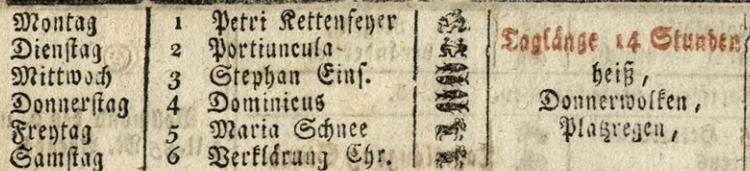 Montag 1 Petri Kettenfeyer
Dienstag 2 Portiuncula
Taglänge 14 Stunden
Mittwoch 3 Stephan Eins.
heiß,
Donnerstag 4 Dominicus
Donnerwolken,
Freytag 5 Maria Schnee
Platzregen,
Samstag 6 Verklärung Chr.